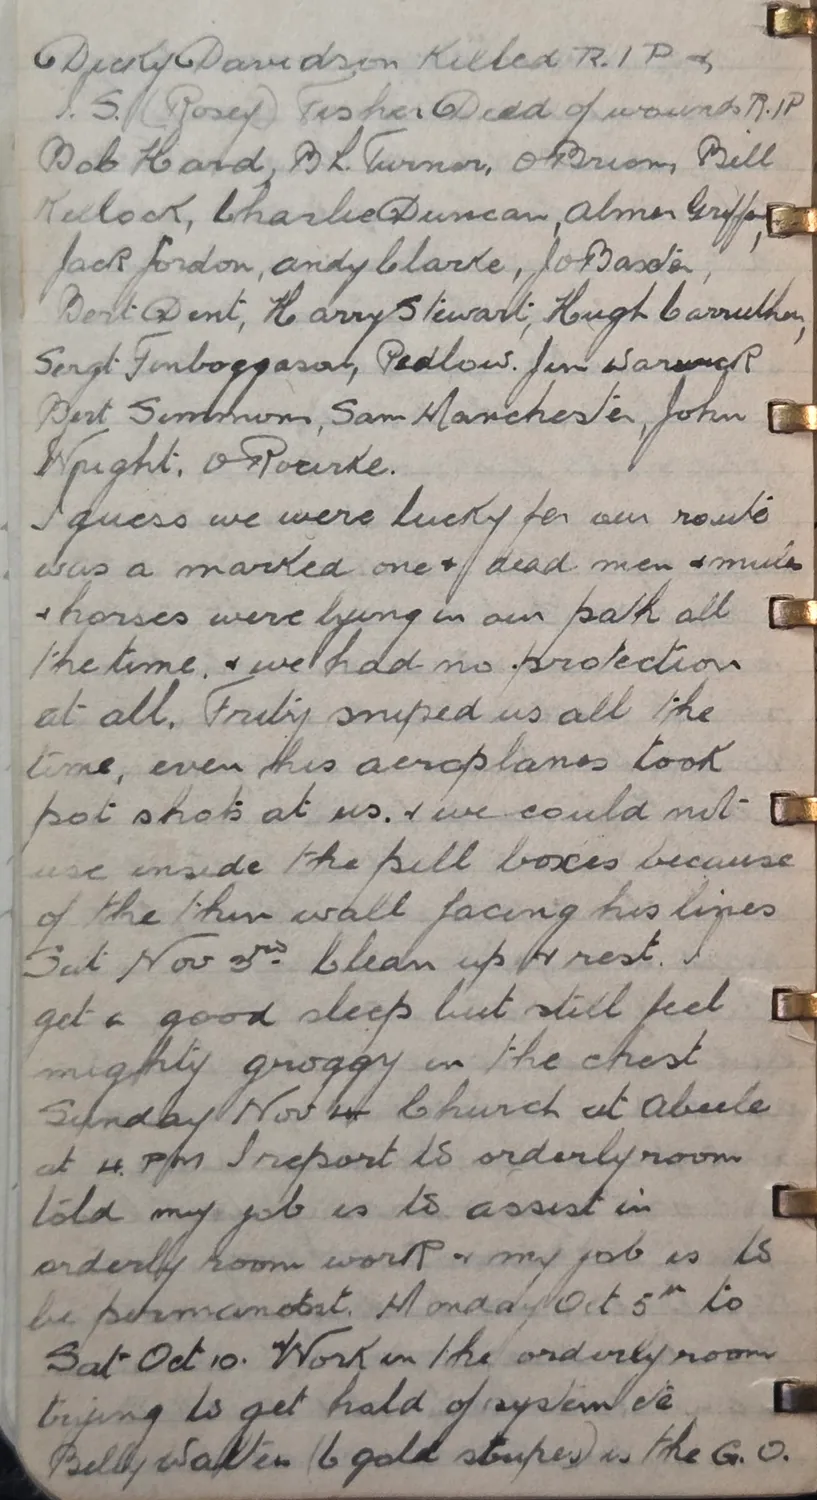 Dicky Davidson Killed R.I P &
I. S. (Rosey) Fisher Died of wounds R.IP
Bob Hard, B L. Turner, O Brien, Bill
Kellock, Charlie Duncan, Almer
Jack Jordon, Andy Clarke, Jo Baxter,
Bert Dent, Harry Stewart, Hugh Carruthers,
Sergt Finboggason, Pedlow. Jim Warwick
Bert Simmons, Sam Manchester, John
Wright. O Rourke.
I guess we were lucky for our route
was a marked one & dead men & mules
& horses were lying in our path all
the time. & we had no protection
at all. Fritz sniped us all the
time, even his aeroplanes took
pot shots at us. & we could not
use inside the pill boxes because
of the thin wall facing his lines
Sat Nov 3rd. Clean up & rest. I
get a good sleep but still feel
mighty groggy in the chest
Sunday Nov 4 Church at Abeele
at 4. PM I report to orderly room
told my job is to assist in
orderly room work & my job is to
be Monday Oct 5th to
Sat Oct 10. Work in the orderly room
trying to get hold of system etc
Billy Walten (6 gold stripes) is the G. O.